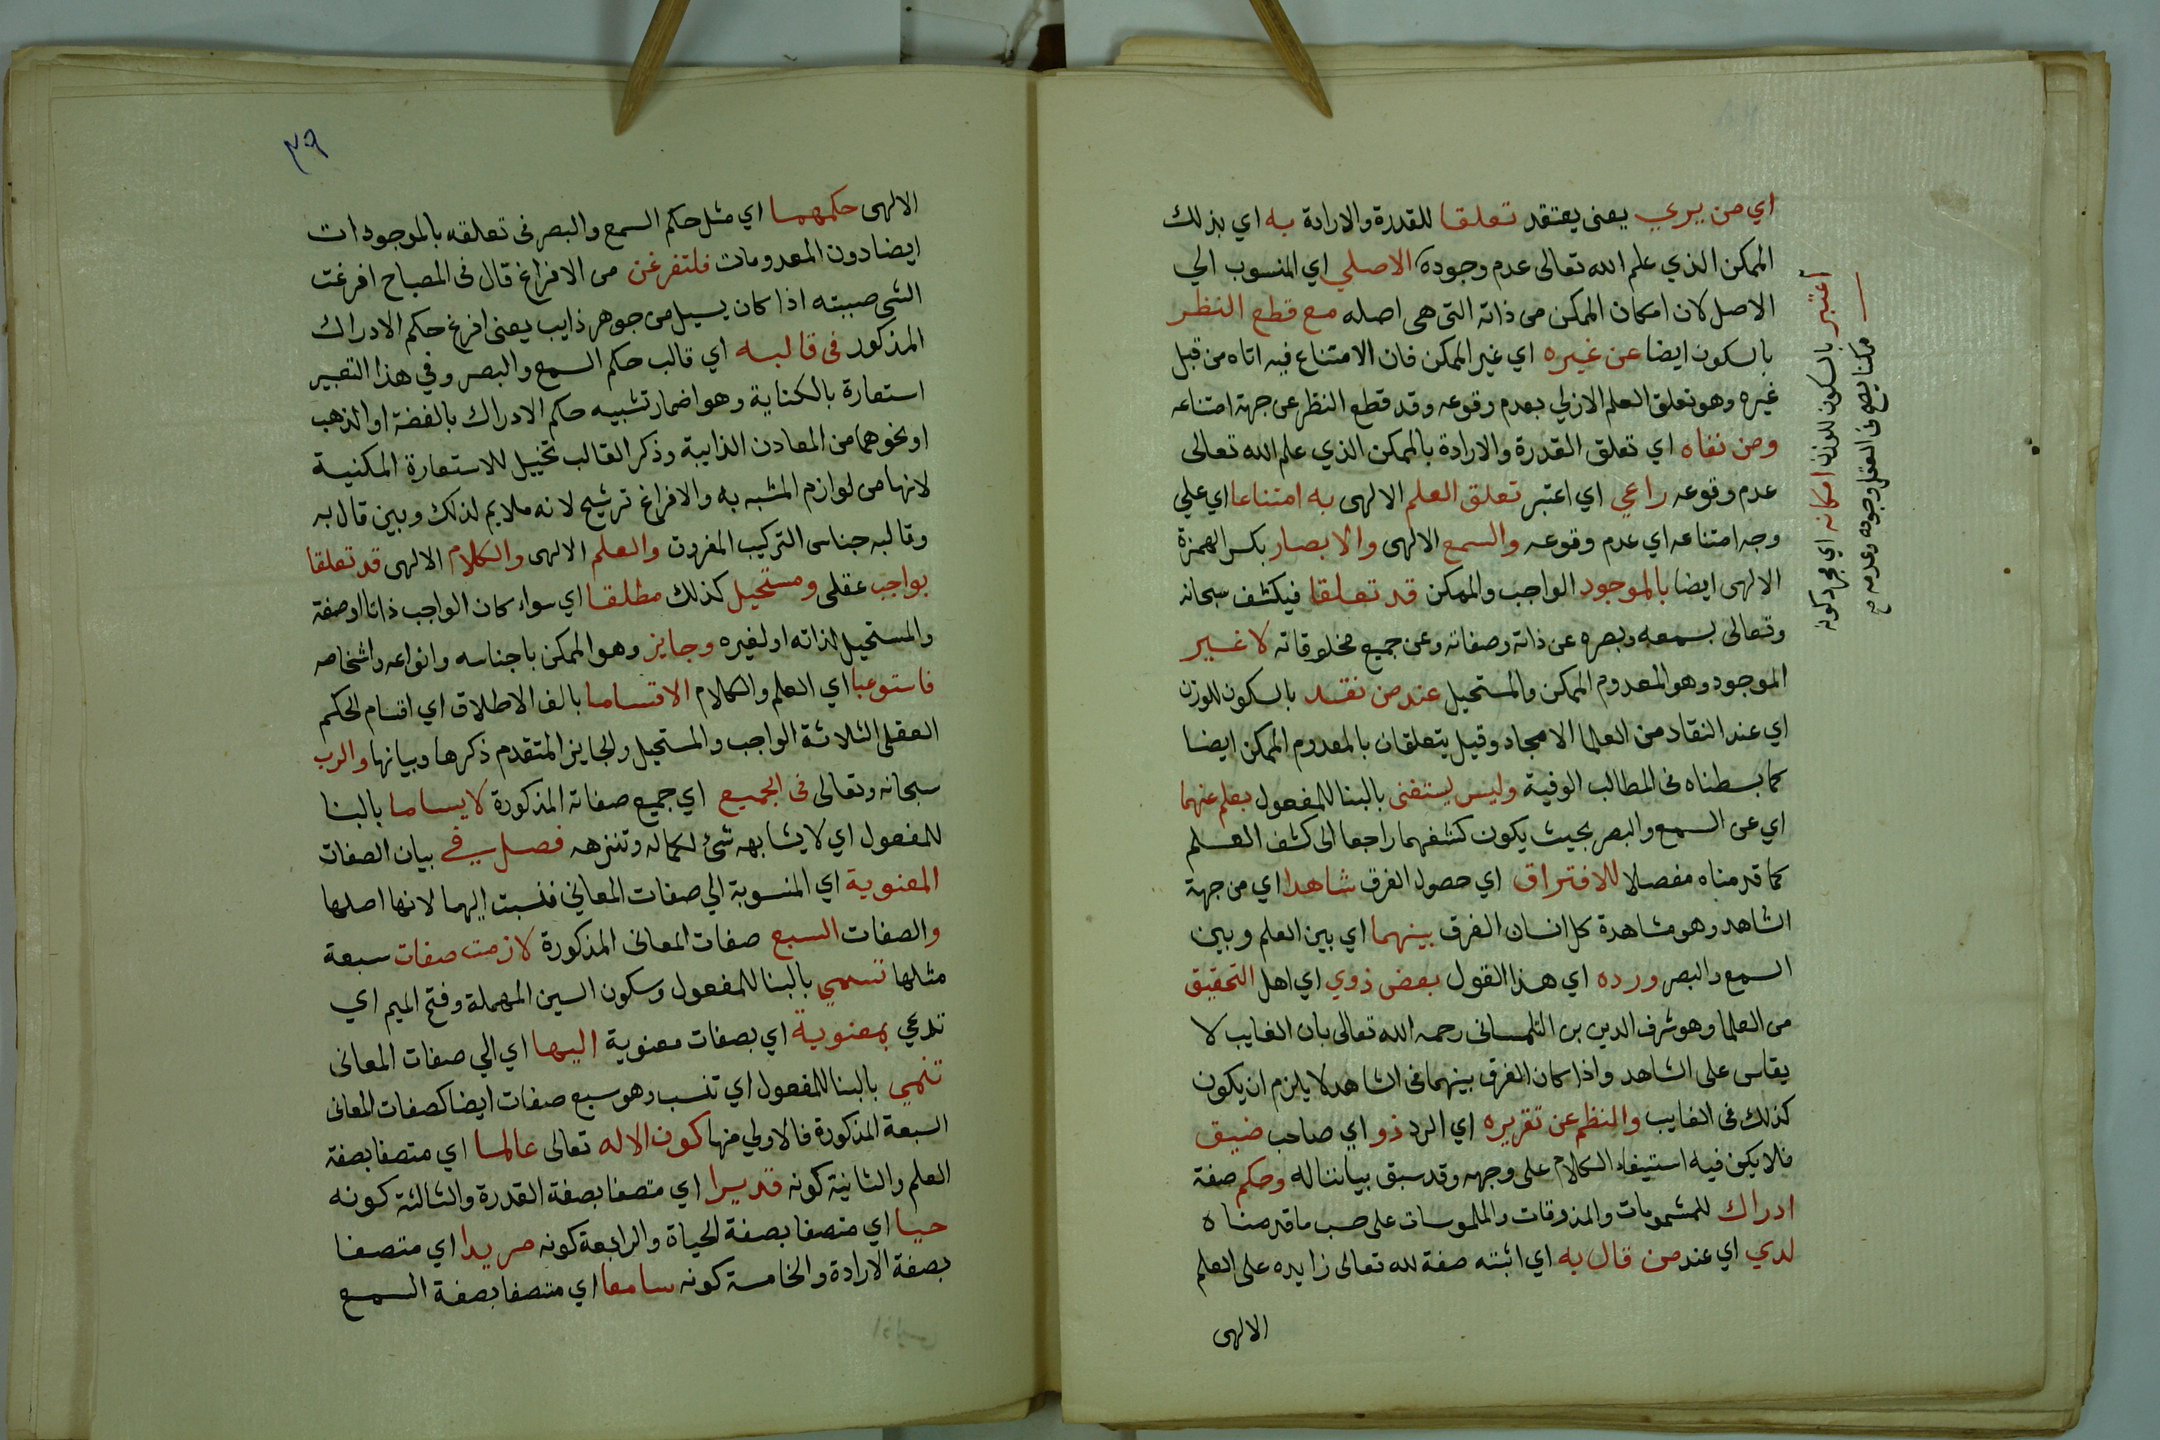 اي من يري يعنى يعتقد تعلقا للقدرة والارادة به اي بذلك
الممكن الذي علم الله تعالى عدم وجوده الاصلي اي المنسوب الي
الاصل لان امكان الممكن من ذاته التى هى اصله مع قطع النظر
بالسكون ايضا عن غيره اي غير الممكن فان الامتناع فيه اتاه من قبل
غيره وهو تعلق العلم الازلي بعدم وقوعه وقد قطع النظر عن جهة امتناعه
ومن نفاه اي تعلق القدرة والارادة بالممكن الذي علم الله تعالى
عدم وقوعه راعي اي اعتبر تعلق العلم الالهى به امتناعا اي علي
وجه امتناعه اي عدم وقوعه والسمع الالهى والابصار بكسر الهمزة
الالهى ايضا بالموجود الواجب والممكن قد تعلقا فيكشف سبحانه
وتعالى بسمعه وبصره عن ذاته وصفاته وعن جميع مخلوقاته لا غير
الموجود وهو المعدوم الممكن والمستحيل عند من نقد بالسكون للوزن
اي عند النقاد من العلما الامجاد وقيل يتعلقان بالمعدوم الممكن ايضا
كما بسطناه فى المطالب الوفية وليس يستغنى بالبنا للمفعول بعلم عنهما
اي عن السمع والبصر بحيث يكون كشفهما راجعا الى كشف العلم
كما قدمناه مفصلا للافتراق اي حصول الفرق شاهدا اي من جهة
الشاهد وهو مشاهدة كل انسان الفرق بينهما اي بين العلم وبين
السمع والبصر ورده اي هذا القول بعض ذوي اي اهل التحقيق
من العلما وهو شرف الدين بن التلمسانى رحمه الله تعالى بان الغايب لا
يقاس على الشاهد واذا كان الفرق بينهما فى الشاهد لا يلزم ان يكون
كذلك فى الغايب والنظم عن تقريره اي الرد ذو اي صاحب ضيق
فلا يكن فيه استيفاء الكلام على وجهه وقد سبق بياننا له وحكم صفة
ادراك للمشمومات والمذوقات والملموسات على حسب ما قدمناه
لدي اي عند من قال به اي اثبته صفة لله تعالى زايده على العلم
الالهى
اعتبر بالسكون للوزن امكانه اي مجرد كونه
ممكنا يصح فى العقل وجوده وعدمه صح
٣٩
الالهى حكمهما اي مثل حكم السمع والبصر فى تعلقه بالموجودات
ايضا دون المعدومات فلتفرغن من الافراغ قال فى المصباح افرغت
الشى صببته اذا كان يسيل من جوهر ذايب يعنى افرغ حكم الادراك
المذكور فى قالبه اي قالب حكم السمع والبصر وفي هذا التعبير
استعارة بالكناية وهو اضمار تشبيه حكم الادراك بالفضة او الذهب
او نحوهما من المعادن الذايبة وذكر القالب تخييل للاستعارة المكنية
لانها من لوازم المشبه به والافراغ ترشيح لانه ملايم لذلك وبين قال به
وقالبه جناس التركيب المفروق والعلم الالهى والكلام الالهى قد تعلقا
بواجب عقلى ومستحيل كذلك مطلقا اي سواء كان الواجب ذاتا او صفة
والمستحيل لذاته او لغيره وجايز وهو الممكن باجناسه وانواعه واشخاصه
فاستوعبا اي العلم والكلام الاقساما بالف الاطلاق اي اقسام الحكم
العقلى الثلاثة الواجب والمستحيل والجايز المتقدم ذكرها وبيانها والرب
سبحانه وتعالى فى الجميع اي جميع صفاته المذكورة لا يساما بالبنا
للمفعول اي لا يشابهه شئ لكماله وتنزهه فصل في بيان الصفات
المعنوية اي المنسوبة الي صفات المعاني فنسبت اليها لانها اصلها
والصفات السبع صفات المعانى المذكورة لازمت صفات سبعة
مثلها تسمي بالبنا للمفعول وسكون السين المهملة وفتح الميم اي
تدعي بمعنوية اي بصفات معنوية اليها اي الي صفات المعانى
تنمي بالبنا للمفعول اي تنسب وهو سبع صفات ايضا كصفات المعانى
السبعة المذكورة فالاولي منها كون الاله تعالى عالما اي متصفا بصفة
العلم والثانية كونه قديرا اي متصفا بصفة القدرة والثالثة كونه
حيا اي متصفا بصفة الحياة والرابعة كونه مريدا اي متصفا
بصفة الارادة والخامسة كونه سامعا اي متصفا بصفة السمع